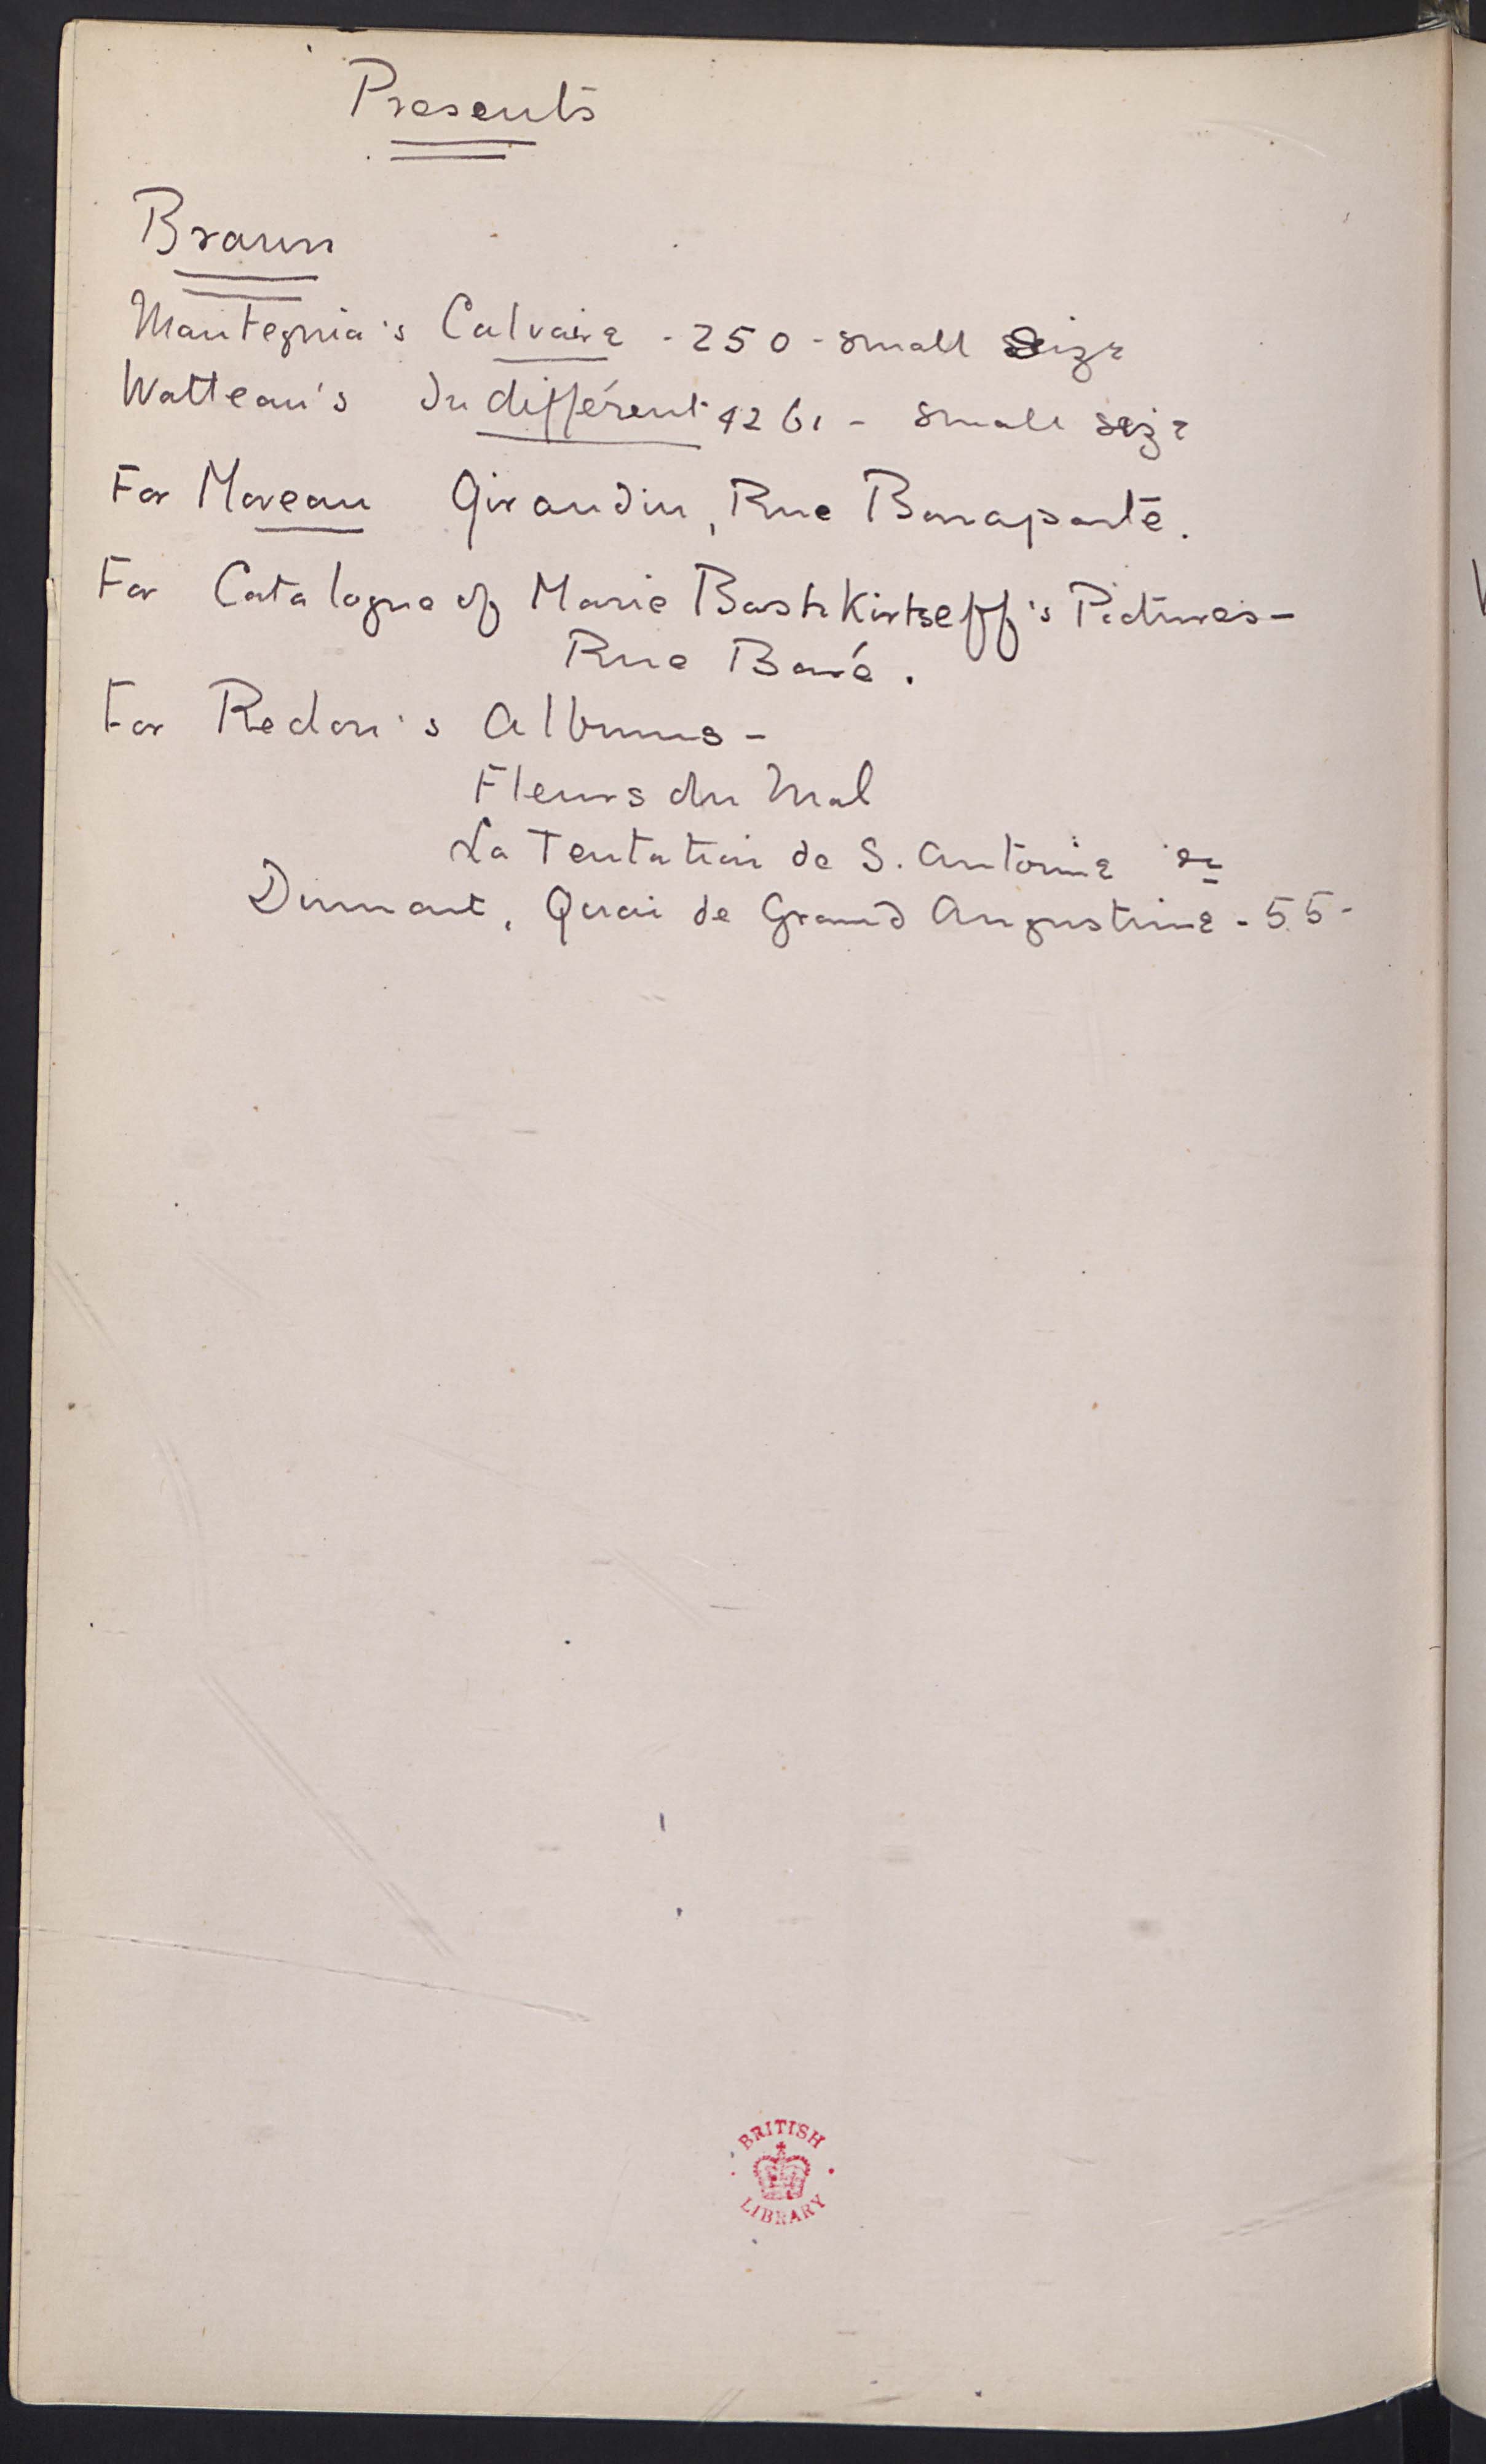 Presents
Braun
Mantegnia's Calvaire - 250 - small size
Watteau's Indifférent 4261 - small size
For Moreau Giraudin, Rue Bonaparte.
For Catalogue of Marie Bashkirtseff's Pictures -
Rue Baré.
For Redon's Albums -
Fleurs du Mal
La Tentation de S. Antoine
Dumont, Quai de Grand Augustine - 55 -
BRITISH
LIBRARY